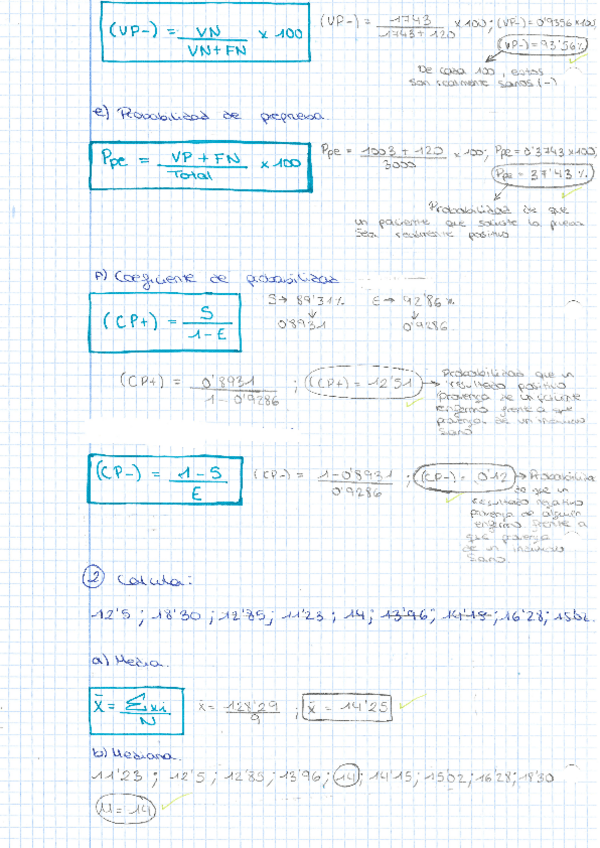 (VP-) = VN / VN+FN x 100 (VP-) = 1743 / 1743+120 x 100; (VP-)=0'9356 x100
(VP-)=93'56%
De cada 100, estos
son realmente sanos (-)
e) Probabilidad de preprueba.
Ppe = VP + FN / Total x 100 Ppe = 1003 + 120 / 3000 x 100; Ppe=0'3743 x100;
Ppe = 37'43%
Probabilidad de que
un paciente que solicite la prueba
sea realmente positivo
f) Coeficiente de probabilidad
(CP+) = S / 1-E S→ 89'31% E→ 92'86%
0'8931 0'9286
(CP+) = 0'8931 / 1-0'9286 ; (CP+) = 12'51 → Probabilidad que un
resultado positivo
provenga de un paciente
enfermo frente a que
provenga de un individuo
sano
(CP-) = 1-S / E (CP-) = 1-0'8931 / 0'9286 ; (CP-) = 0'12 → Probabilidad
de que un
resultado negativo
provenga de alguien
enfermo frente a
que provenga
de un individuo
sano.
2 Calcula:
12'5 ; 18'30 ; 12'85 ; 11'23 ; 14 ; 13'96 ; 14'15 ; 16'28 ; 15'02.
a) Media.
x̄ = Σxi / N x̄ = 128'29 / 9 ; x̄ = 14'25
b) Mediana.
11'23 ; 12'5 ; 12'85 ; 13'96 ; 14 ; 14'15 ; 15'02 ; 16'28 ; 18'30
M = 14